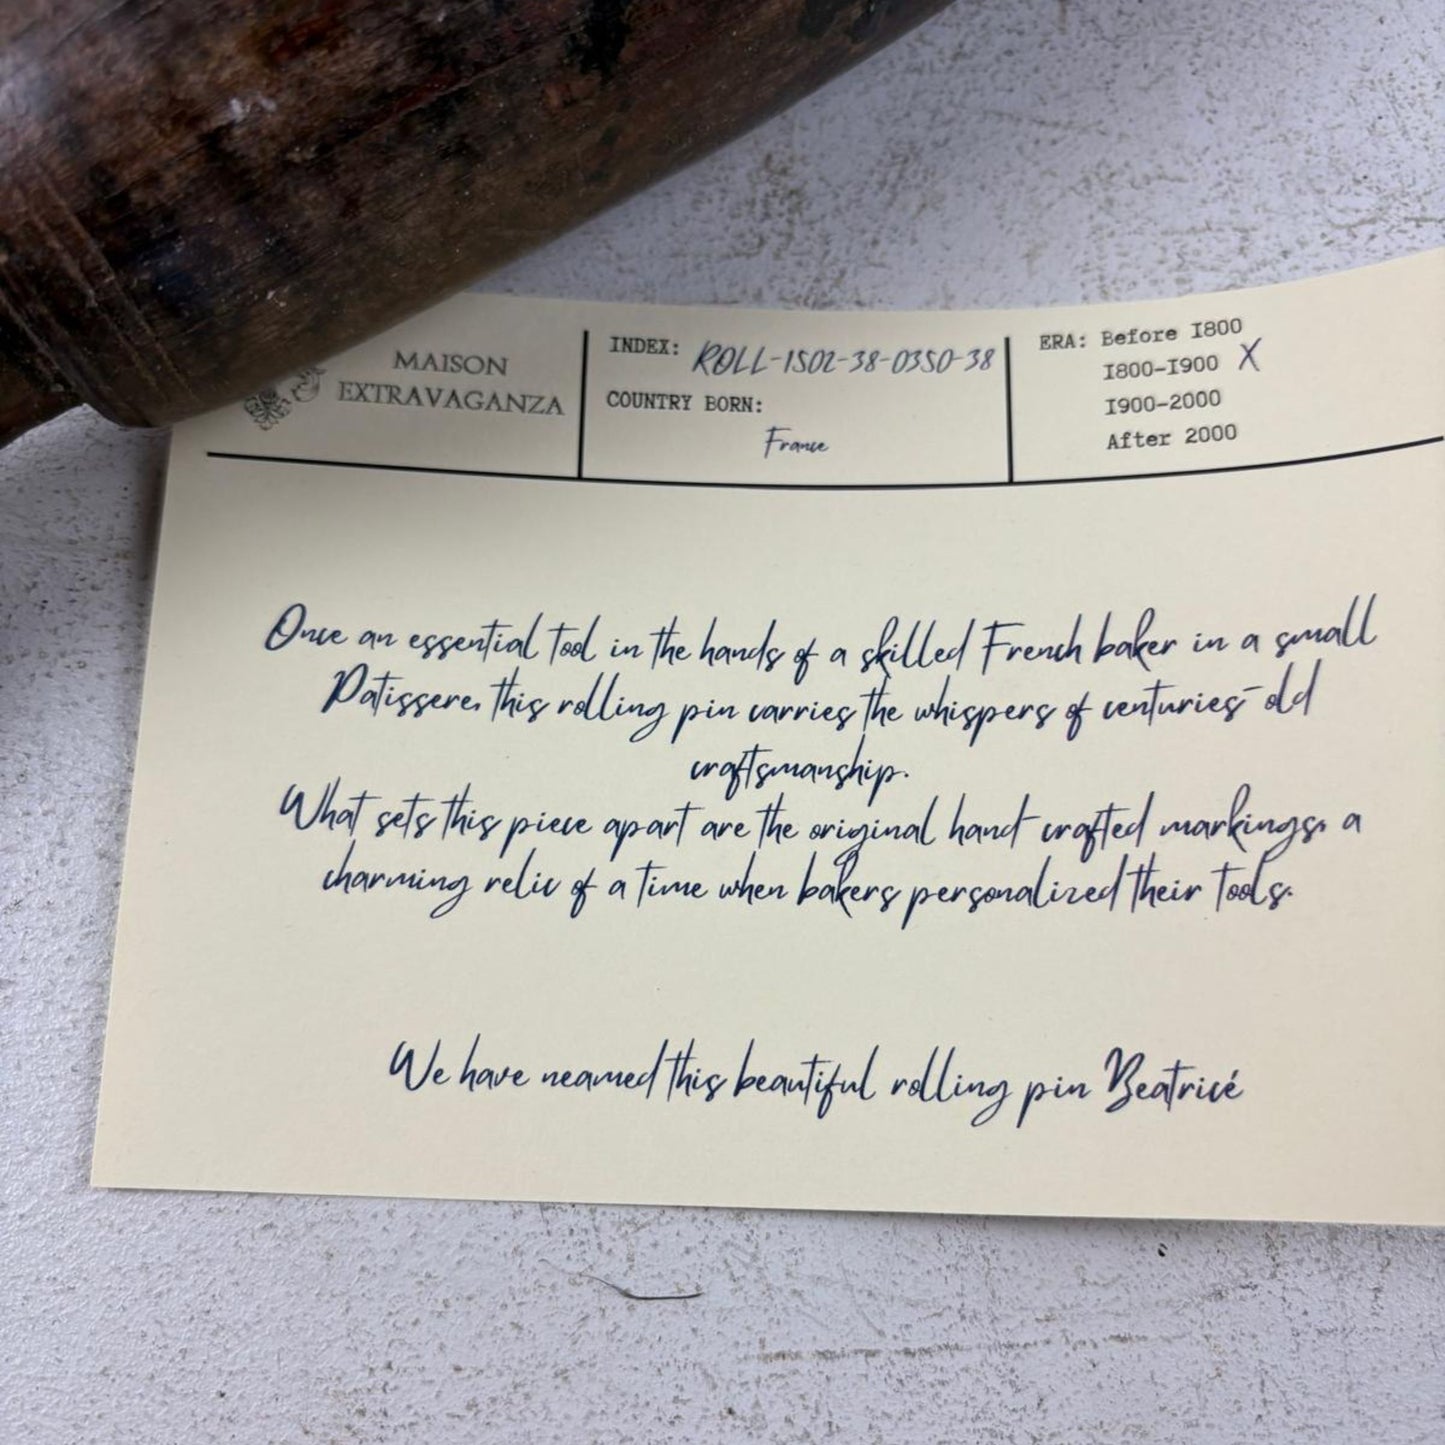 MAISON
EXTRAVAGANZA
INDEX: ROLL-1502-38-0350-38
COUNTRY BORN:
France
ERA: Before 1800
1800-1900 X
1900-2000
After 2000
Once an essential tool in the hands of a skilled French baker in a small
Patissere, this rolling pin carries the whispers of centuries-old
craftsmanship.
What sets this piece apart are the original hand-crafted markings, a
charming relic of a time when bakers personalized their tools.
We have neamed this beautiful rolling pin Beatricé